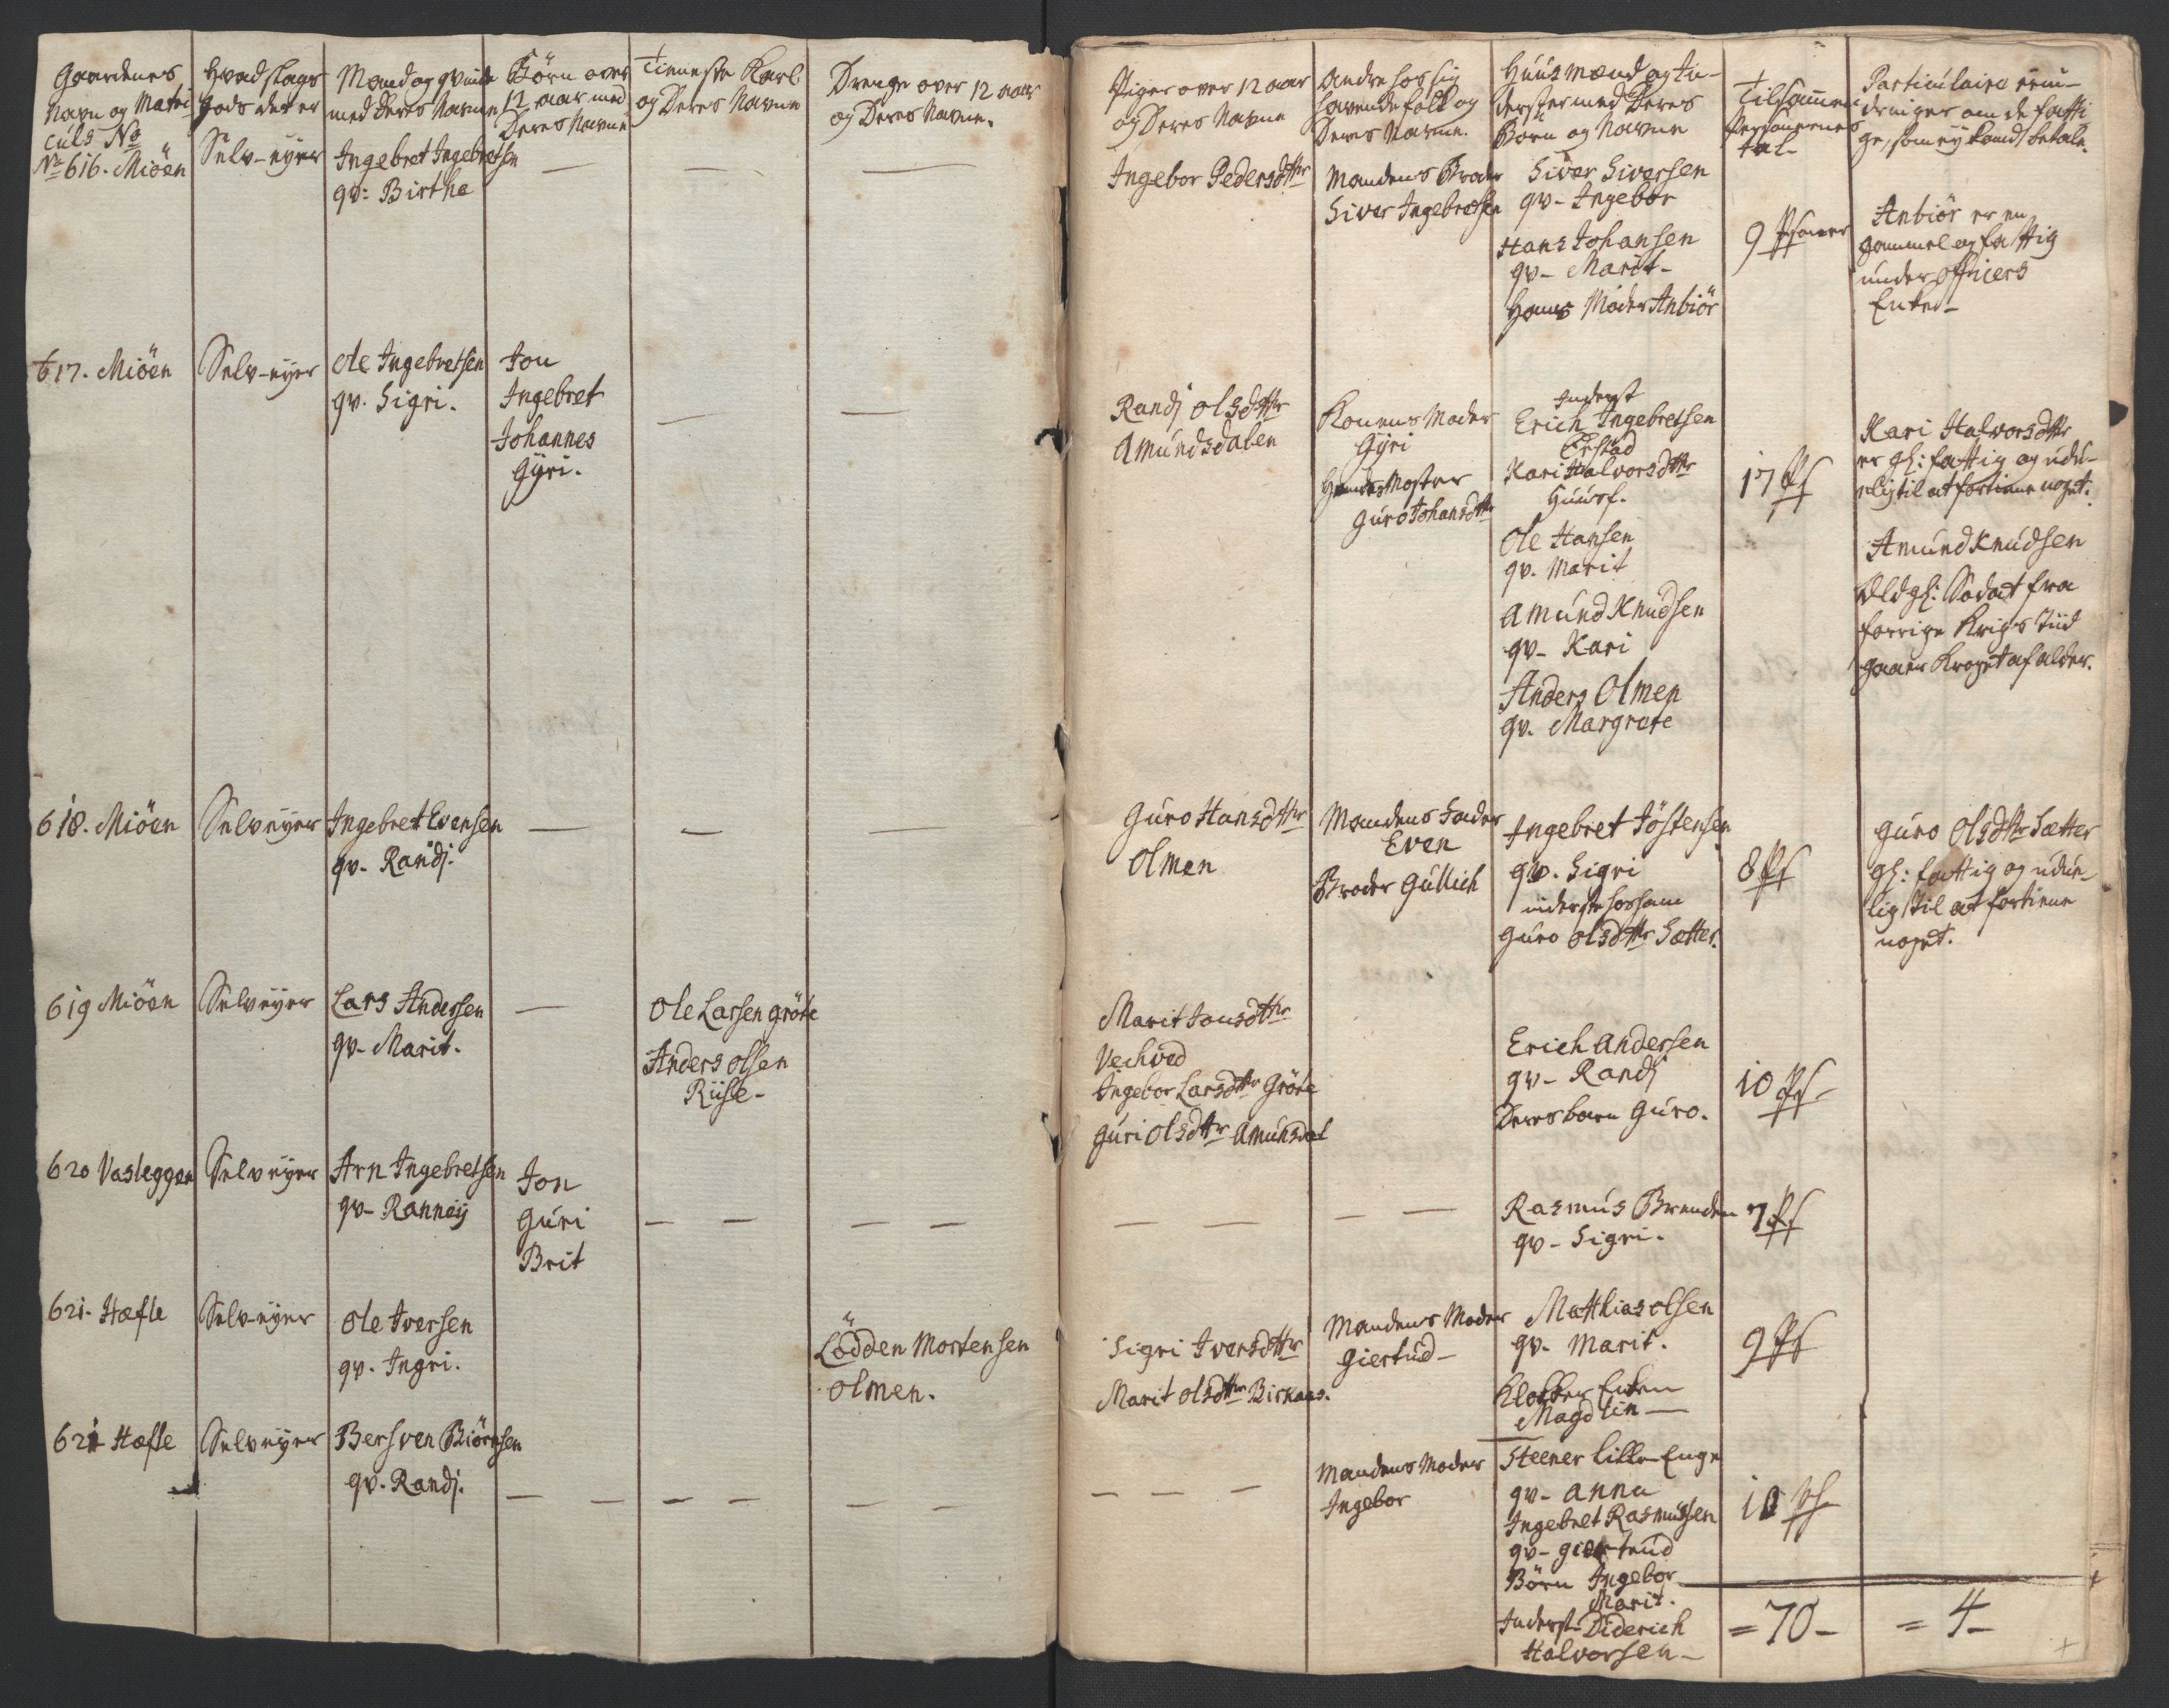 Gaardenes
Navn og Matri
culs No
Hvad slags
Gods det er
Mand og qvinde
med deres Navne
Börn over
12 aar med
Deres Navne
Tieneste Karle
og Deres Navne
Drenge over 12 aar
og Deres Navne.
Piger over 12 aar
og Deres Navne
Andre hos sig
havende folk og
Deres Navne.
Huus mænd og In-
derster med Deres
Börn og Navne
Tilsammen
Personernes
tal-
Particulaire erin-
dringer om de fatti
ge, som ej kand betale.
No 616. Miöen
Selv-eyer
Ingebret Ingebretsen
qv: Birthe
—
—
—
Ingebor Pedersdttr
Mandens Broder
Siver Ingebretsen
Siver Siversen
qv- Ingebor
Hans Johansen
qv- Marit-
Hans Moder Anbiör
9 Psoner
Anbiör er en
gammel og fattig
under officers
Enke-
617. Miöen
Selv-eyer
Ole Ingebretsen
qv. Sigri.
Jon
Ingebret
Johannes
Gÿri.
—
—
Randj olsdttr
Amundsdalen
Konens Moder
Gÿri
Hendes Moster
Guro Johansdttr
Inderst
Erich Ingebretsen
Erstad
Kari Halvorsdttr
Huusf.
Ole Hansen
qv. Marit
Amund Knudsen
qv- Kari
Anders Olmen
qv. Margrete
17 Ps
Kari Halvorsdttr
er gl: fattig og udü-
elig til at fortiene noget.
Amund Knudsen
Soldat fra
forrige Krigs Tiid
gaaer Kroget af alder.
618. Miöen
Selveyer
Ingebret Evensen
qv- Randj.
—
—
—
Guro Hansdttr
Olmen
Mandens Fader
Even
Broder Gullich
Ingebret Jöstensen
qv. Sigri
inderste hos ham
Guro olsdttr Sætter.
8 Ps
Guro Olsdttr Sætter
gl: fattig og udue-
lig til at fortiene
noget.
619 Miöen
Selveyer
Lars Andersen
qv- Marit.
—
Ole Larsen Gröte
Anders olsen
Riise-
Marit Jonsdttr
Vechved
Ingebor Larsdttr Gröte
Guri Olsdttr Amunsdal
Erich Andersen
qv- Randj
Deres barn Guro.
10 Ps-
620 Vasleggen
Selveyer
Arn Ingebretsen
qv- Ranneÿ
Jon
Guri
Brit
— —
— —
— —
— —
Rasmus Brenden
qv- Sigri.
7 Ps
621- Hæfle
Selv-eyer
Ole Iversen
qv. Ingri.
Lödden Mortensen
Olmen.
Sigri Iversdttr
Marit Olsdttr Birkaas.
Mandens Moder
Giertud-
Matthias olsen
qv. Marit.
Klokker Enken
Magdlin —
9 Ps
621 Hæfle
Selveyer
Bersven Biörnsen
qv. Randj.
— —
— —
— —
— — —
Mandens Moder
Ingebor
Steener Lille Enge
qv- Anna
Ingebret Rasmussen
qv- Giertrud
Börn Ingebor
Marit.
Inderst- Diderich
Halvorsen-
10 Ps
= 70 -
= 4 -